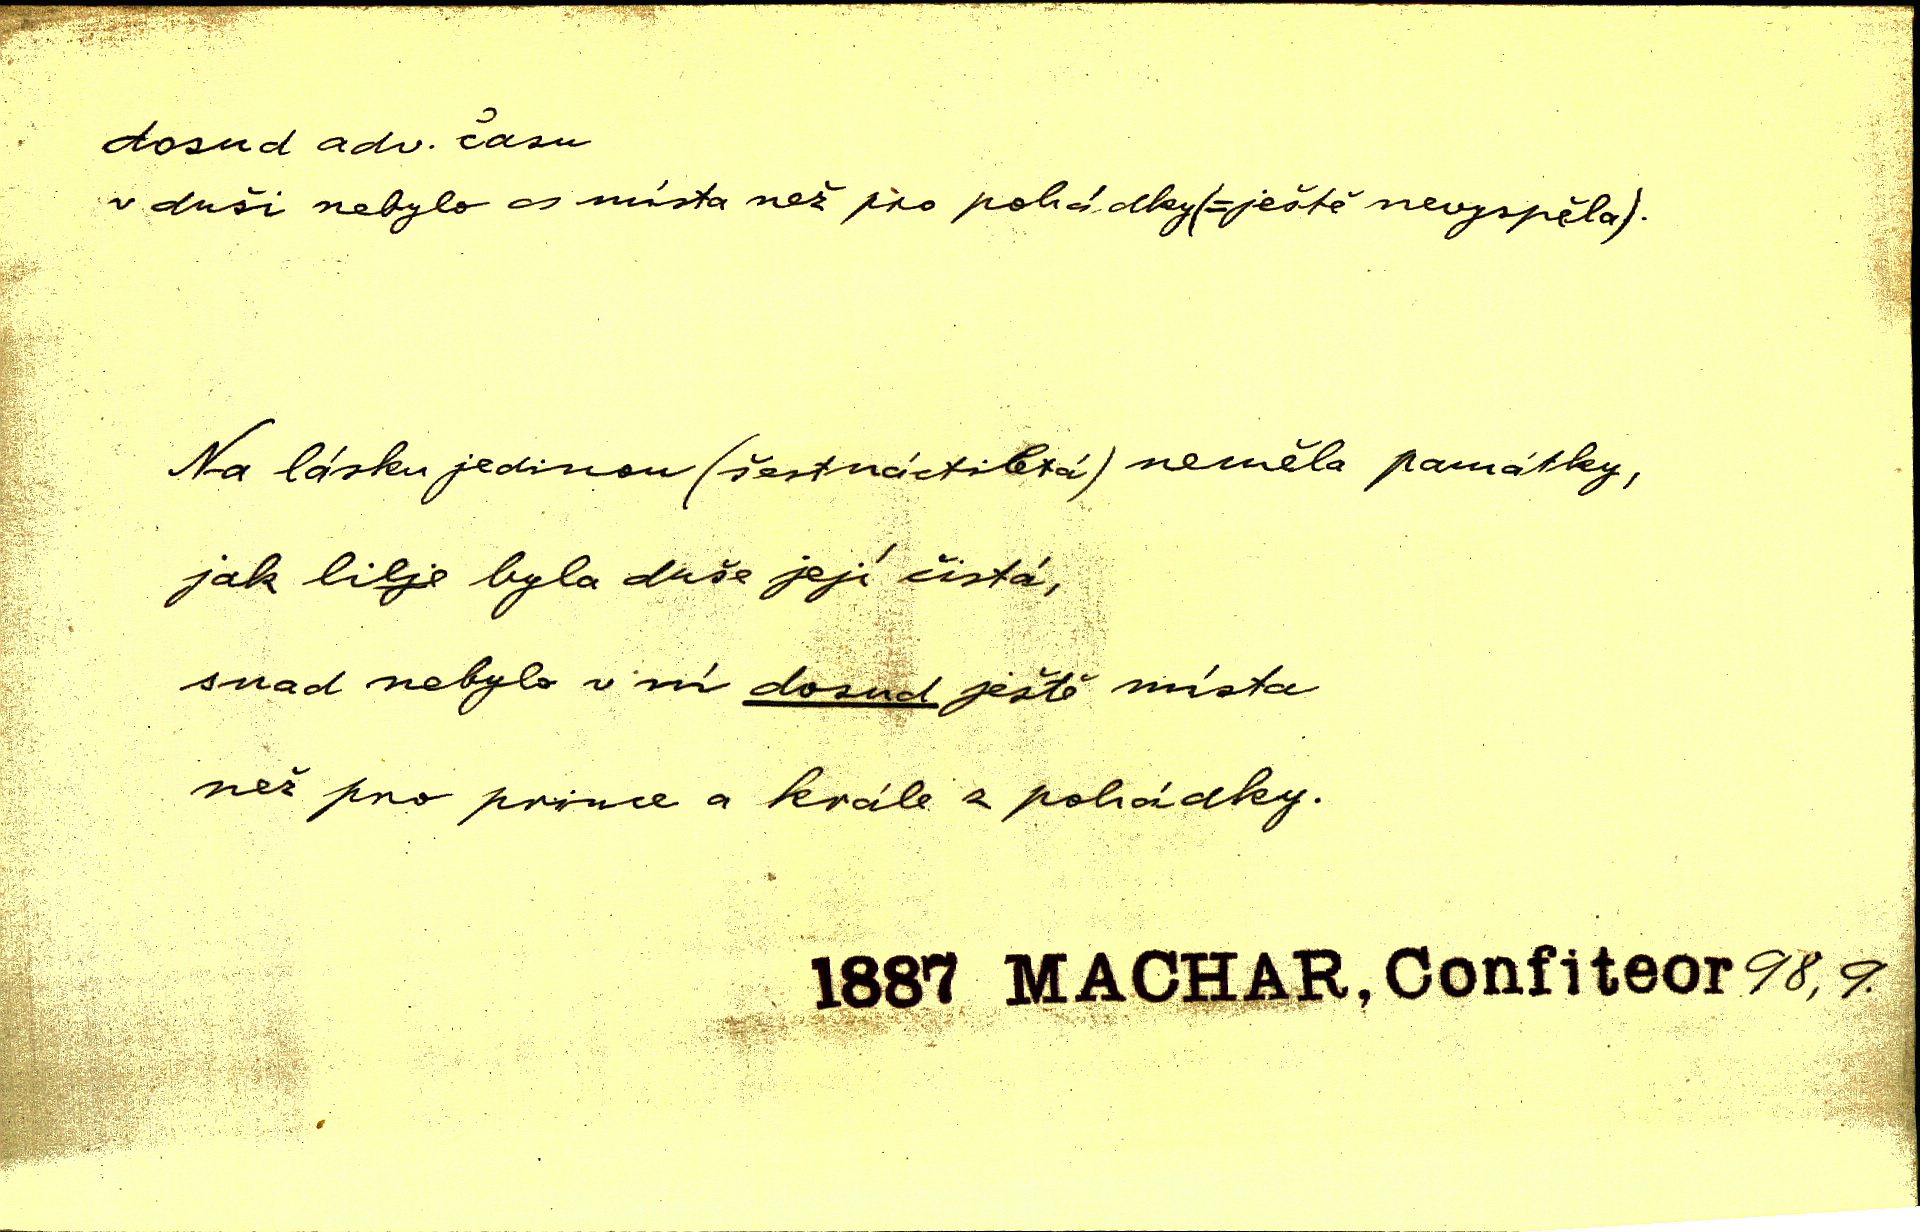 dosud adv. času
v duši nebylo ∾ místa než pro pohádky (=ještě nevyspěla).
Na lásku jedinou (šestnáctiletá) neměla památky,
jak lilje byla duše její čistá,
snad nebylo v ní dosud ještě místa
než pro prince a krále z pohádky.
1887 MACHAR, Confiteor 98, 9.